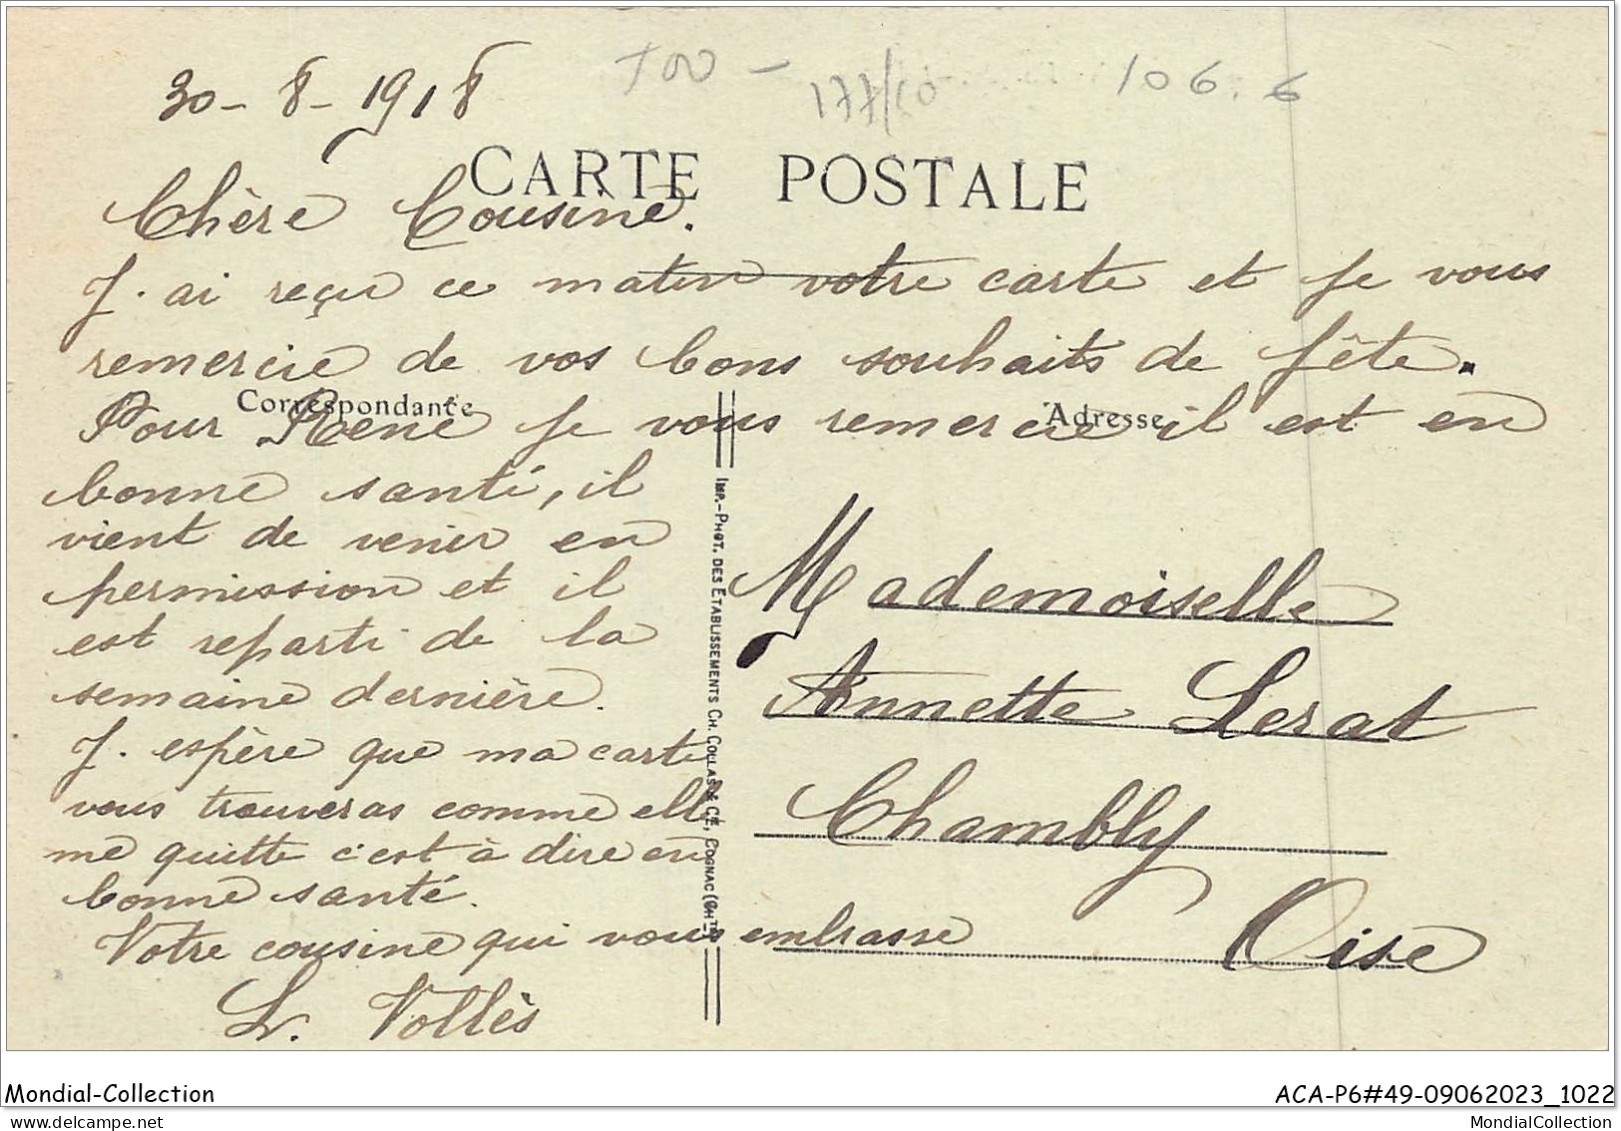 30 - 8 - 1918
100 -
177/10
106.6
CARTE POSTALE
Chère Cousine.
J. ai reçu ce matin votre carte et je vous
remercie de vos bons souhaits de fête.
Correspondance
Adresse
Pour René je vous remercie il est en
bonne santé, il
vient de venir en
permission et il
est reparti de la
semaine dernière.
J. espère que ma carte
vous trouveras comme elle
me quitte c'est à dire en
bonne santé.
Votre cousine qui vous embrasse
L. Vollès
IMP.-PHOT. DES ETABLISSEMENTS CH. COLLAS & CIE, COGNAC (CHTE)
Mademoiselle
Annette Lerat
Chambly
Oise
Mondial-Collection
ACA-P6#49-09062023_1022
mondial-collection
MondialCollection